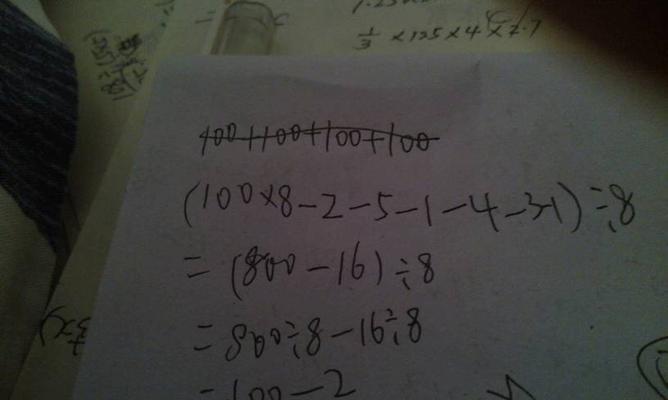 1/3 ×125×4×7.7
100+100+100+100
(100×8-2-5-1-4-3-1)÷8
=(800-16)÷8
=800÷8-16÷8
=100-2